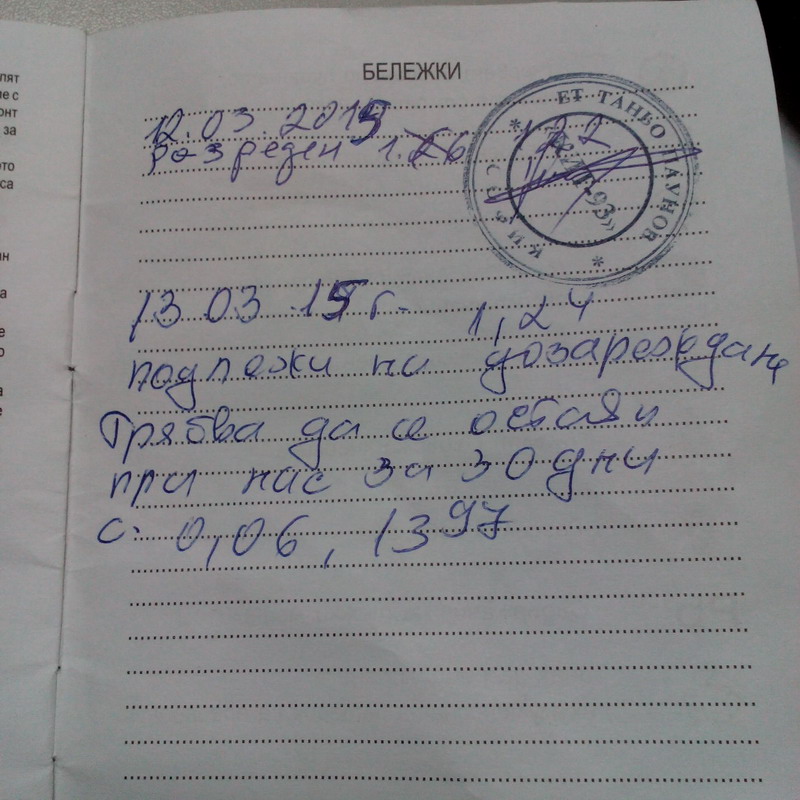 БЕЛЕЖКИ
12.03.2015
разреден 1.26 1,22
ЕТ ТАНЬО ПАУНОВ
13 03 15 г. 1,24
подлежи на дозареждане
Трябва да се остави
при нас за 30 дни
0,06, 1397
лят
е с
онт
за
ото
са
ан
а
е
о
а
е